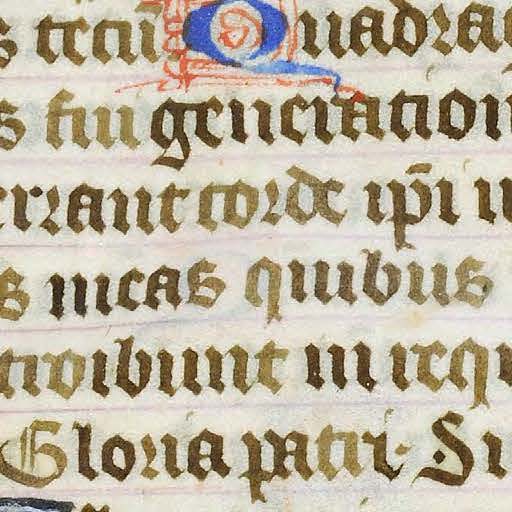 s tecū Quadra
s fui generation
errant corde ip̄i u
s meas quibus
troibunt in requ
Gloria patri. Si